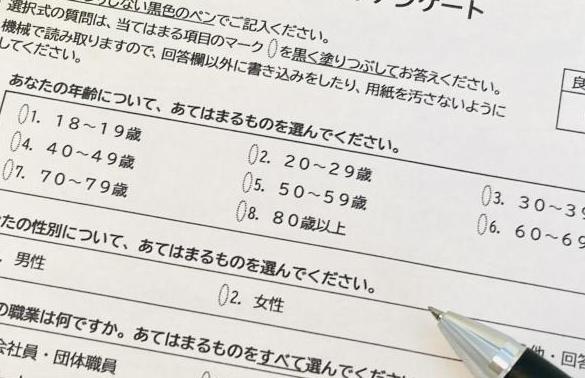 アンケート
しない黒色のペンでご記入ください。
選択式の質問は、当てはまる項目のマーク を黒く塗りつぶしてお答えください。
機械で読み取りますので、回答欄以外に書き込みをしたり、用紙を汚さないように
してください。
良
あなたの年齢について、あてはまるものを選んでください。
1. 18～19歳 2. 20～29歳 3. 30～39
4. 40～49歳 5. 50～59歳 6. 60～69
7. 70～79歳 8. 80歳以上
たの性別について、あてはまるものを選んでください。
. 男性 2. 女性 他・回答
の職業は何ですか。あてはまるものをすべて選んでください
会社員・団体職員